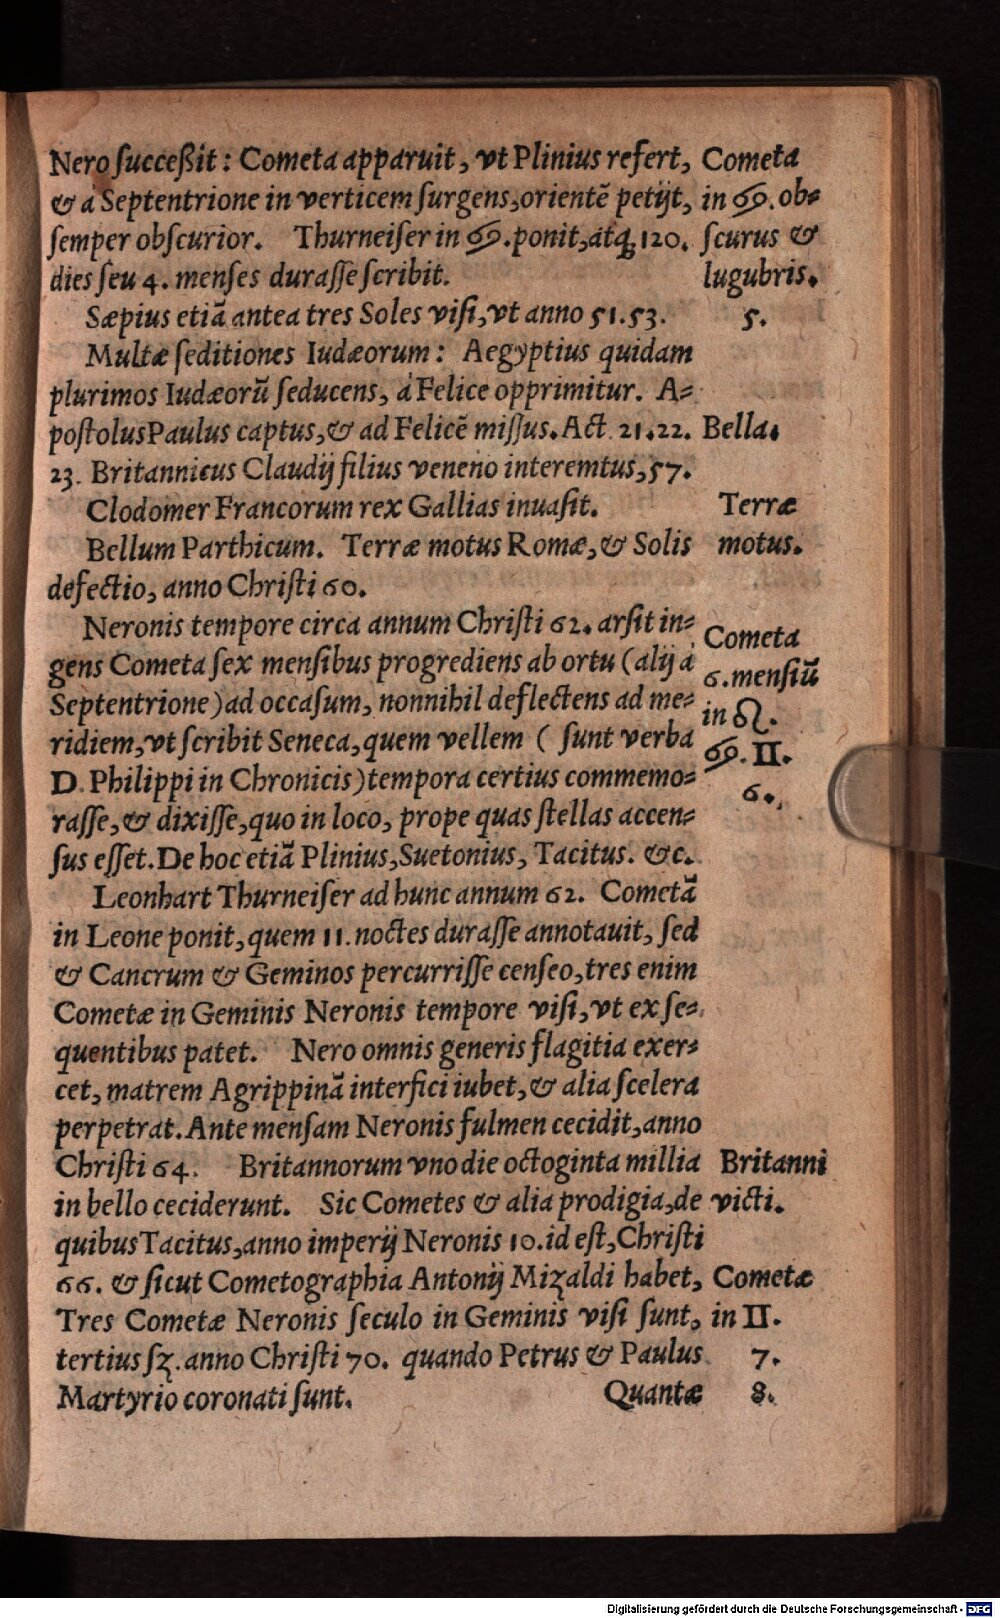 Nero ſucceßit: Cometa apparuit, vt Plinius refert,
& à Septentrione in verticem ſurgens, orientē petijt,
ſemper obſcurior. Thurneiſer in ♋. ponit, atq; 120.
dies ſeu 4. menſes duraſſe ſcribit.
Cometa
in ♋. ob⸗
ſcurus &
lugubris.
5.
Sæpius etiā antea tres Soles viſi, vt anno 51. 53.
Multæ ſeditiones Iudæorum: Aegyptius quidam
plurimos Iudæorū ſeducens, à Felice opprimitur. A⸗
poſtolus Paulus captus, & ad Felicē miſſus. Act. 21. 22.
23. Britannicus Claudij filius veneno interemtus, 57.
Bella.
Clodomer Francorum rex Gallias inuaſit.
Bellum Parthicum. Terræ motus Romæ, & Solis
defectio, anno Chriſti 60.
Terræ
motus.
Neronis tempore circa annum Chriſti 62. arſit in⸗
gens Cometa ſex menſibus progrediens ab ortu (alij à
Septentrione) ad occaſum, nonnihil deflectens ad me⸗
ridiem, vt ſcribit Seneca, quem vellem ( ſunt verba
D. Philippi in Chronicis) tempora certius commemo⸗
raſſe, & dixiſſe, quo in loco, prope quas ſtellas accen⸗
ſus eſſet. De hoc etiā Plinius, Suetonius, Tacitus. &c.
Cometa
6. menſiū
in ♌.
♋. II.
6.
Leonhart Thurneiſer ad hunc annum 62. Cometā
in Leone ponit, quem 11. noctes duraſſe annotauit, ſed
& Cancrum & Geminos percurriſſe cenſeo, tres enim
Cometæ in Geminis Neronis tempore viſi, vt ex ſe⸗
quentibus patet. Nero omnis generis flagitia exer⸗
cet, matrem Agrippinā interfici iubet, & alia ſcelera
perpetrat. Ante menſam Neronis fulmen cecidit, anno
Chriſti 64. Britannorum vno die octoginta millia
in bello ceciderunt. Sic Cometes & alia prodigia, de
quibus Tacitus, anno imperij Neronis 10. id eſt, Chriſti
66. & ſicut Cometographia Antonij Mizaldi habet,
Tres Cometæ Neronis ſeculo in Geminis viſi ſunt,
tertius ſꝫ. anno Chriſti 70. quando Petrus & Paulus
Martyrio coronati ſunt.
Britanni
victi.
Cometæ
in II.
7.
8.
Quantæ
Digitalisierung gefördert durch die Deutsche Forschungsgemeinschaft - DFG